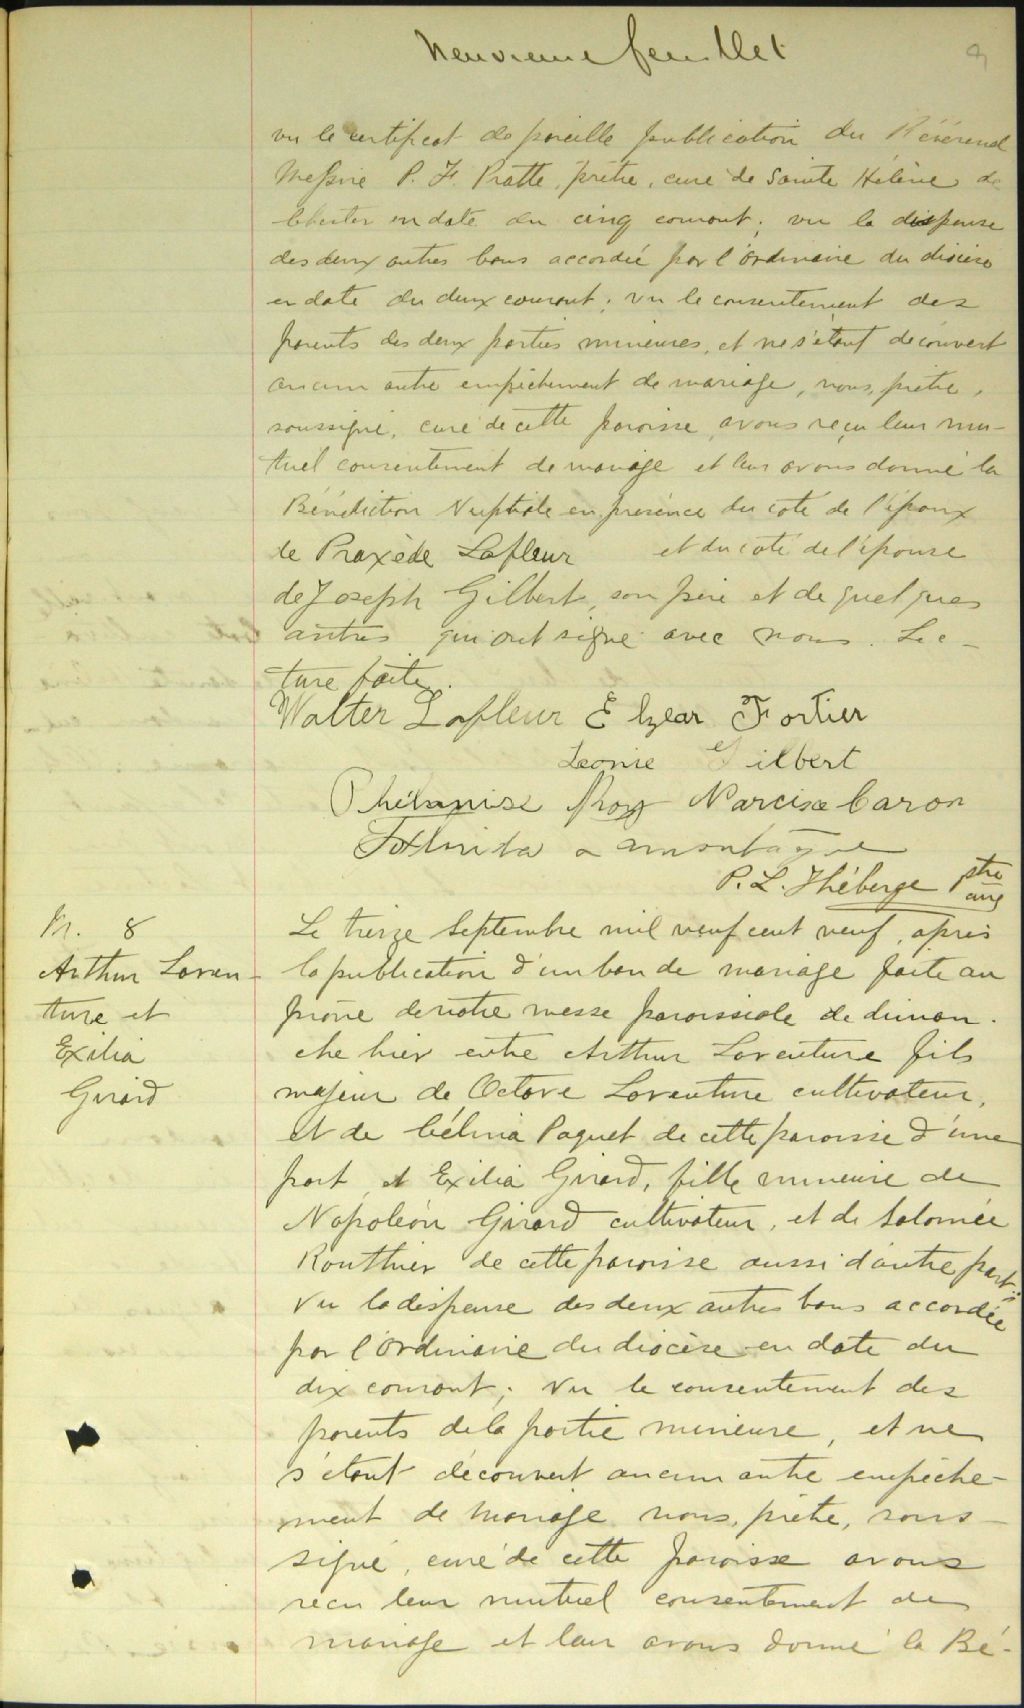 Neuvieme feuillet
9
vu le certificat de pareille publication du Révérend
Messire P. F. Pratte, prêtre, curé de Sainte Hélène de
Chester en date du cinq courant; vu la dispense
des deux autres bans accordée par l'Ordinaire du diocèse
en date du deux courant; vu le consentement des
parents des deux parties mineures, et ne s'étant découvert
aucun autre empêchement de mariage, nous, prêtre,
soussigné, curé de cette paroisse, avons reçu leur mu-
tuel consentement de mariage et leur avons donné la
Bénédiction Nuptiale en présence du coté de l'époux
de Praxède Lafleur et du coté de l'épouse
de Joseph Gilbert, son père et de quelques
autres qui ont signé avec nous. Lec-
ture faite.
Walter Lafleur Elzear Fortier
Leonie Gilbert
Roy Narcisse Caron
P. L. Théberge ptre
curé
M. 8
Arthur Laven-
ture et
Exilia
Girard
Le treize Septembre mil neuf cent neuf, après
la publication d'un ban de mariage faite au
prône de notre messe paroissiale de diman-
che hier entre Arthur Laventure fils
majeur de Octave Laventure cultivateur,
et de Célina Paquet de cette paroisse d'une
part, et Exilia Girard, fille mineure de
Napoléon Girard cultivateur, et de Salomée
Routhier de cette paroisse aussi d'autre part;
Vu la dispense des deux autres bans accordée
par l'Ordinaire du diocèse en date du
dix courant; Vu le consentement des
parents de la partie mineure, et ne
s'étant découvert aucun autre empêche-
ment de mariage nous, prêtre, sous-
signé, curé de cette paroisse avons
reçu leur mutuel consentement de
mariage et leur avons donné la Bé-